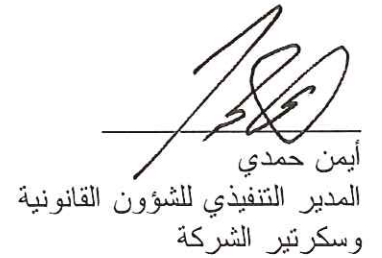 أيمن حمدي
المدير التنفيذي للشؤون القانونية
وسكرتير الشركة